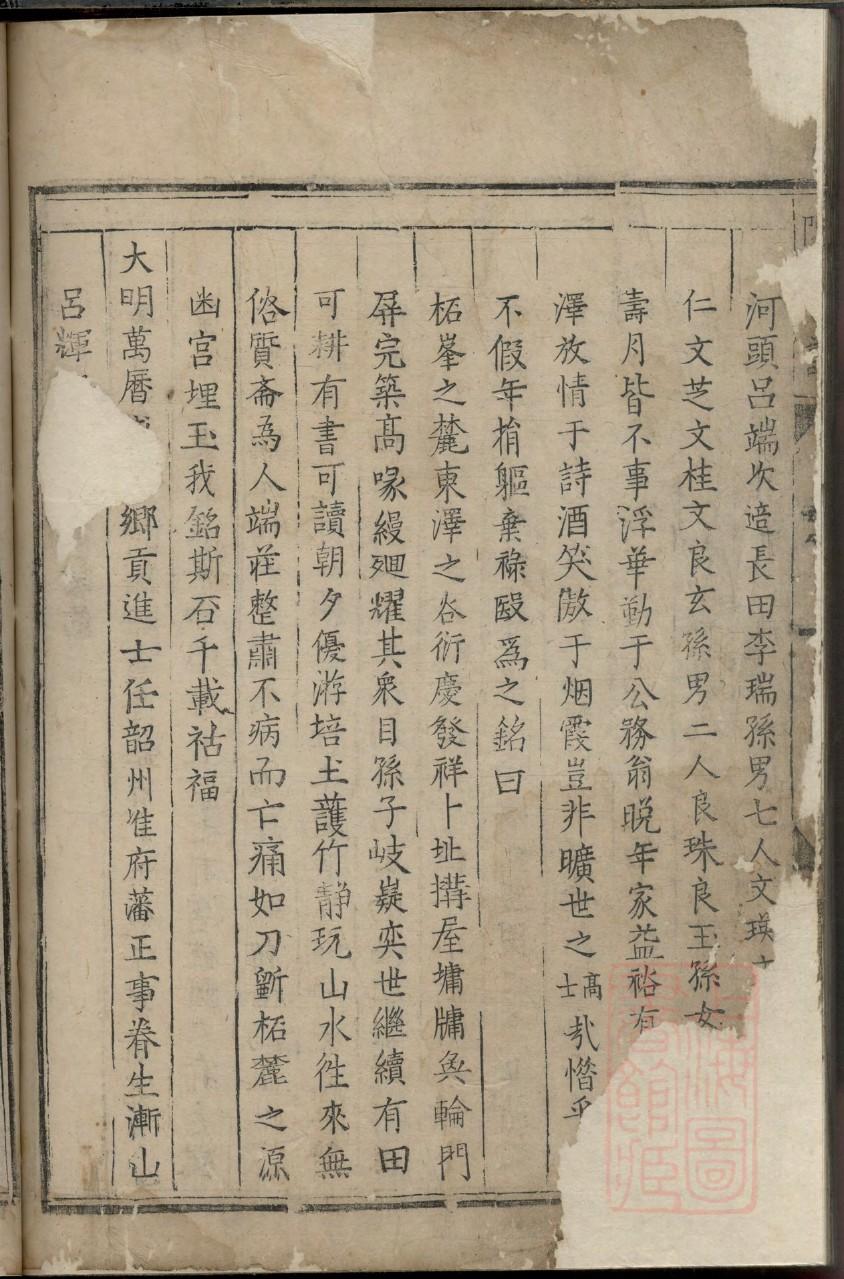 河頭呂端次適長田李瑞孫男七人文瑛
仁文芝文桂文良玄孫男二人良珠良玉孫女
壽月皆不事浮華勤于公務翁晚年家益裕有
澤放情于詩酒笑傲于烟霞豈非曠世之高士㢤惜乎
不假年捐軀棄祿毆爲之銘曰
柘峯之麓東澤之谷衍慶發祥卜址搆屋墉牗奐輪門
屏完築髙喙縵廻耀其衆目孫子岐嶷奕世繼續有田
可耕有書可讀朝夕優游培土䕶竹靜玩山水徃來無
俗質斋為人端莊整肅不病而亡痛如刀斷柘麓之源
幽宫埋玉我銘斯石千載祜福
大明萬曆 鄉貢進士任韶州淮府藩正事眷生漸山
呂輝
上海圖書館藏